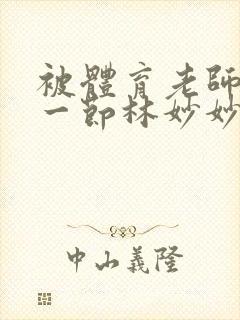 被體育老師
一節林妙妙
中山義隆